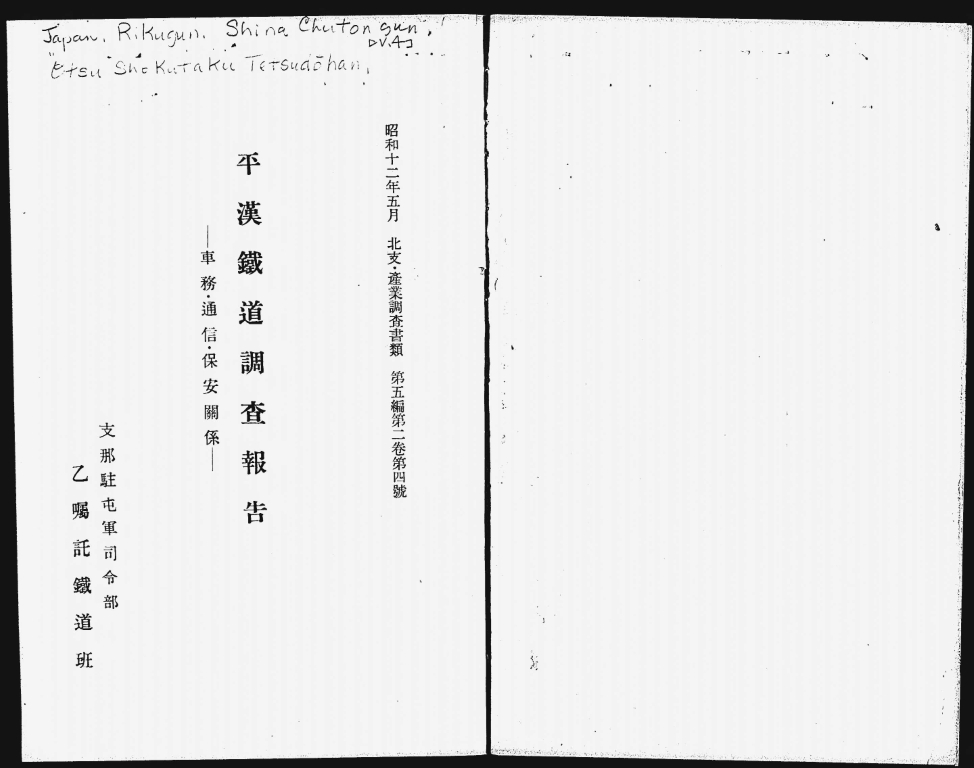 Japan. Rikugun. Shina Chūton gun.
[v.4]
Etsu Shokutaku Tetsudōhan.
昭和十二年五月　北支・産業調査書類　第五編第二卷第四號
平漢鐵道調査報告
―車務・通信・保安關係―
支那駐屯軍司令部
乙囑託鐵道班